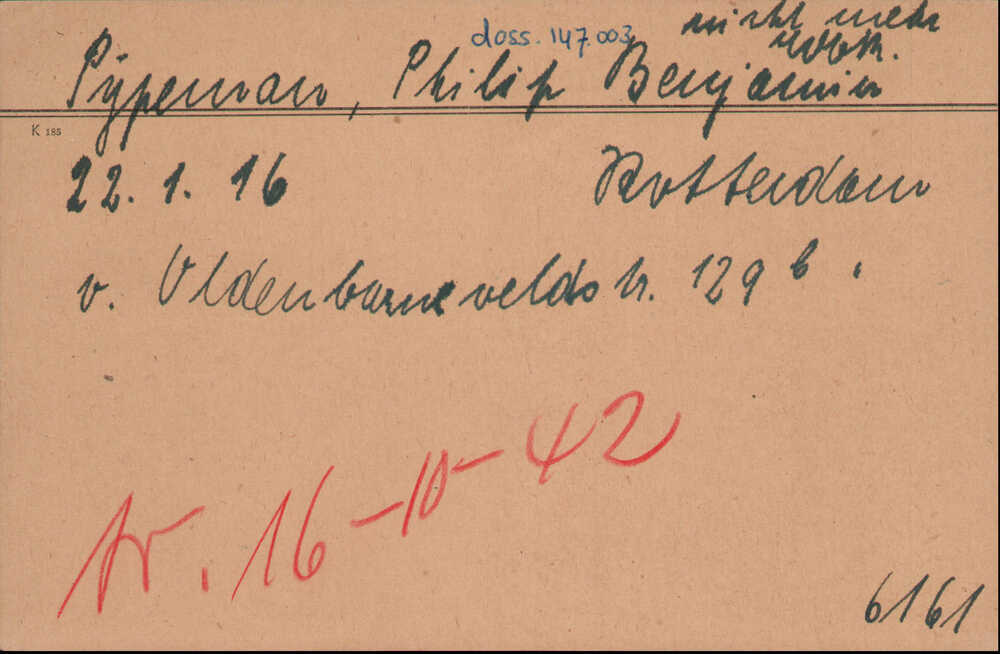 nicht mehr
doss. 147.003
Pÿpeman, Philip Benjamin
K 185
22. 1. 16 Rotterdam
v. Oldenbarneveldstr. 129 b.
tr. 16-10-42
6161